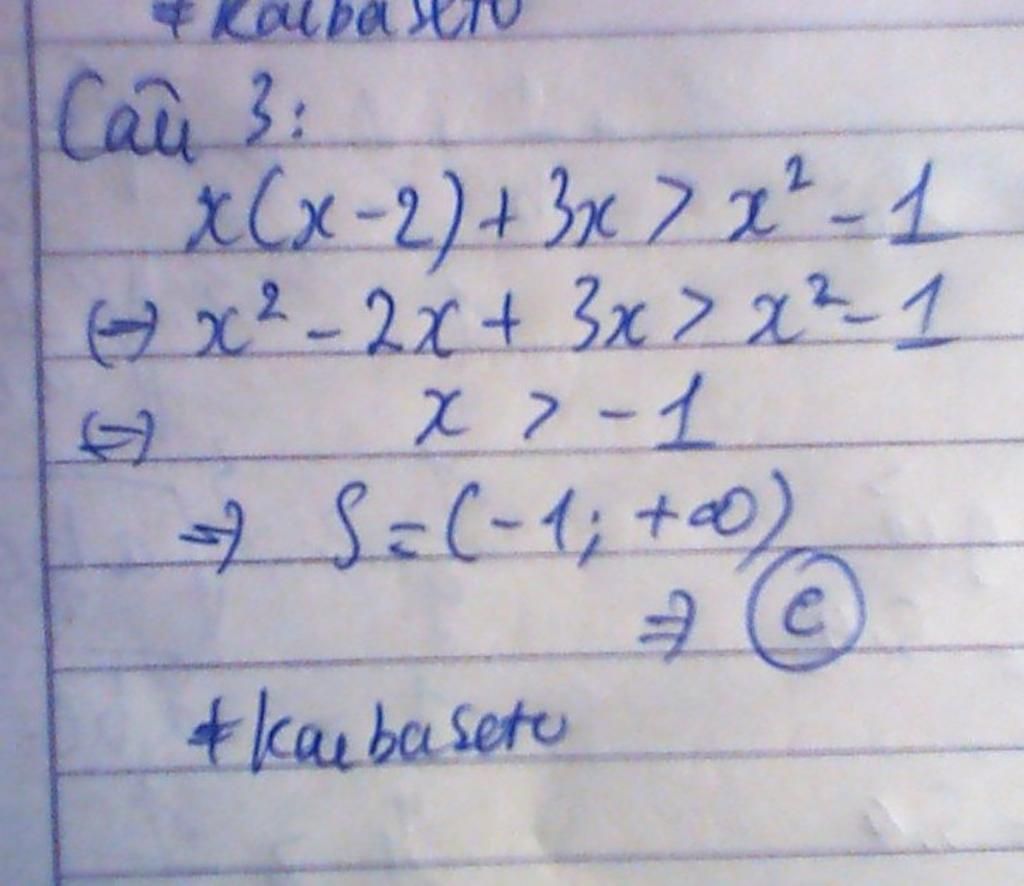 + kaibaseto
Câu 3:
x(x-2) + 3x > x² - 1
(=) x² - 2x + 3x > x² - 1
(=) x > -1
=) S = (-1; +∞)
=) C
+ kaibaseto